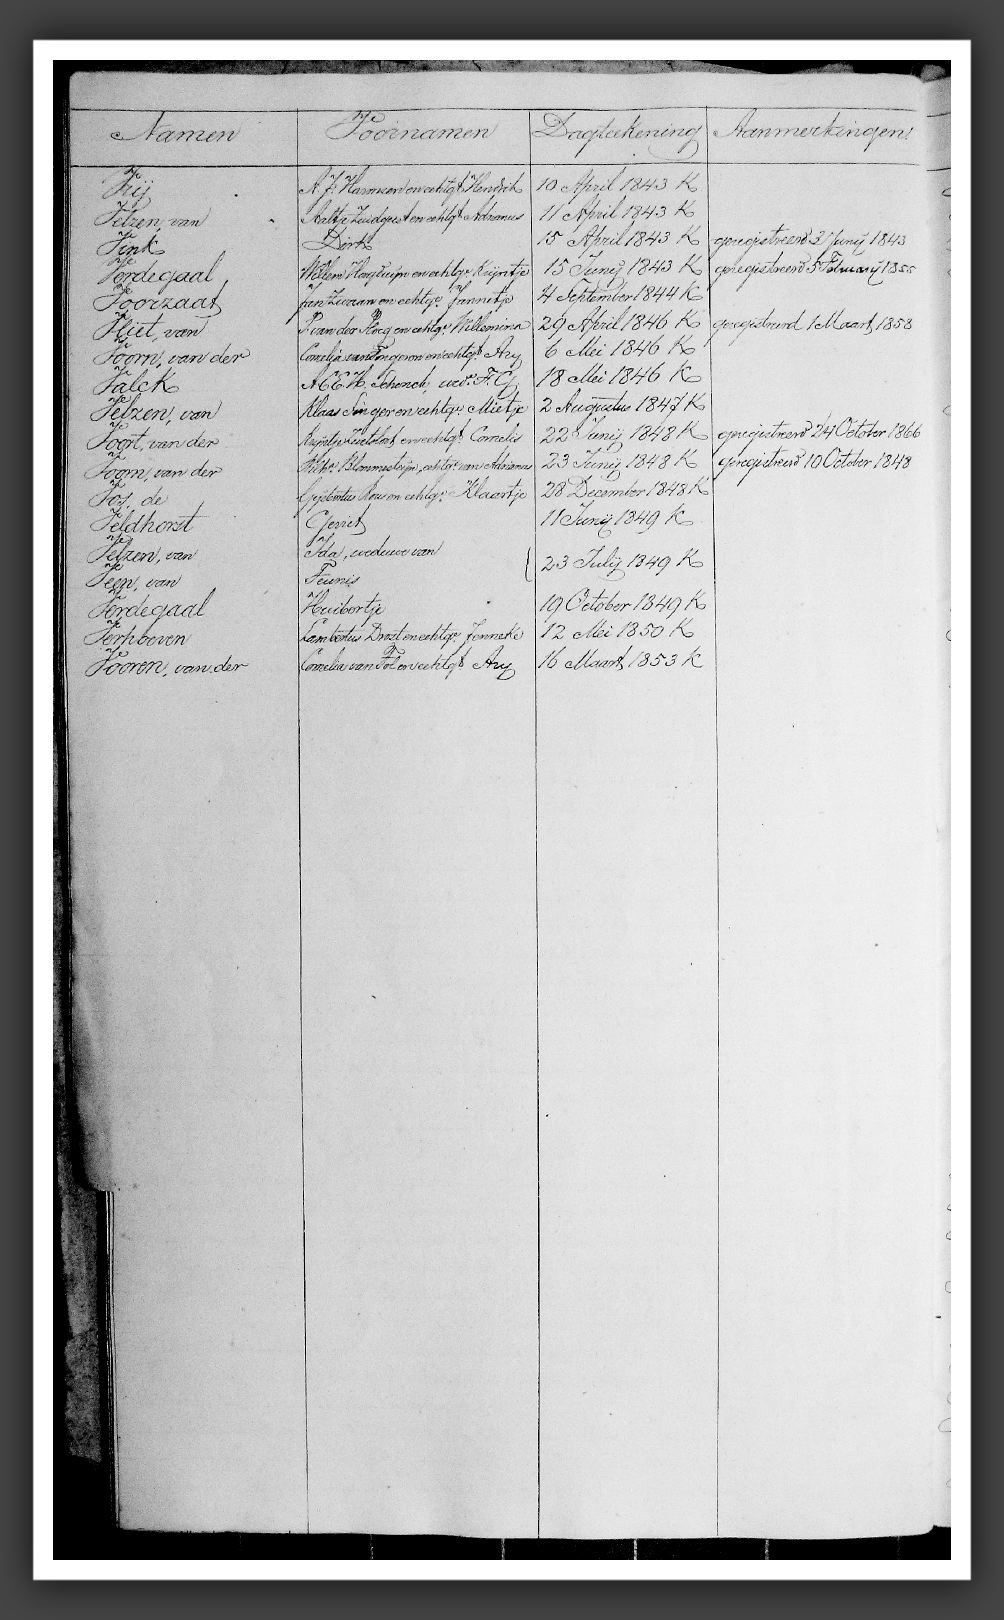 Namen Voornamen Dagteekening Aanmerkingen
Vrij A. J. Harmsen en echtgt Hendrik 10 April 1843 K
Velzen, van Aaltje Zuidgeest en echtgt Adrianus 11 April 1843 K
Vink Dirk 15 April 1843 K geregistreerd 21 Junij 1843
Verdegaal Willem Hoogduijn en echtge Krijntje 15 Junij 1843 K geregistreerd 5 Februarij 1855
Voorzaat Jan Zwaan en echtge Jannetje 4 September 1844 K
Vliet, van P. van der Ploeg en echtge Willemina 29 April 1846 K geregistreerd 1 Maart 1858
Voorn, van der Cornelia van Tongeren en echtgt Ary 6 Mei 1846 K
Valck A C E H. Schenck, wede F. G. 18 Mei 1846 K
Velzen, van Klaas Singer en echtge Mietje 2 Augustus 1847 K
Voort, van der en echtgt Cornelis 22 Junij 1848 K geregistreerd 24 October 1866
Voorn, van der Blommesteijn, echtge van Adrianus 23 Junij 1848 K geregistreerd 10 October 1848
Vos, de Gijsbertus Roos en echtge Klaartje 28 December 1848 K
Veldhorst Gerrit 11 Junij 1849 K
Velzen, van Ida, weduwe van
Veen, van Teunis 23 Julij 1849 K
Verdegaal Huibertje 19 October 1849 K
Verhoeven Lambertus Drost en echtge Jenneke 12 Mei 1850 K
Vooren, van der Cornelia van Tol en echtgt Ary 16 Maart 1853 K